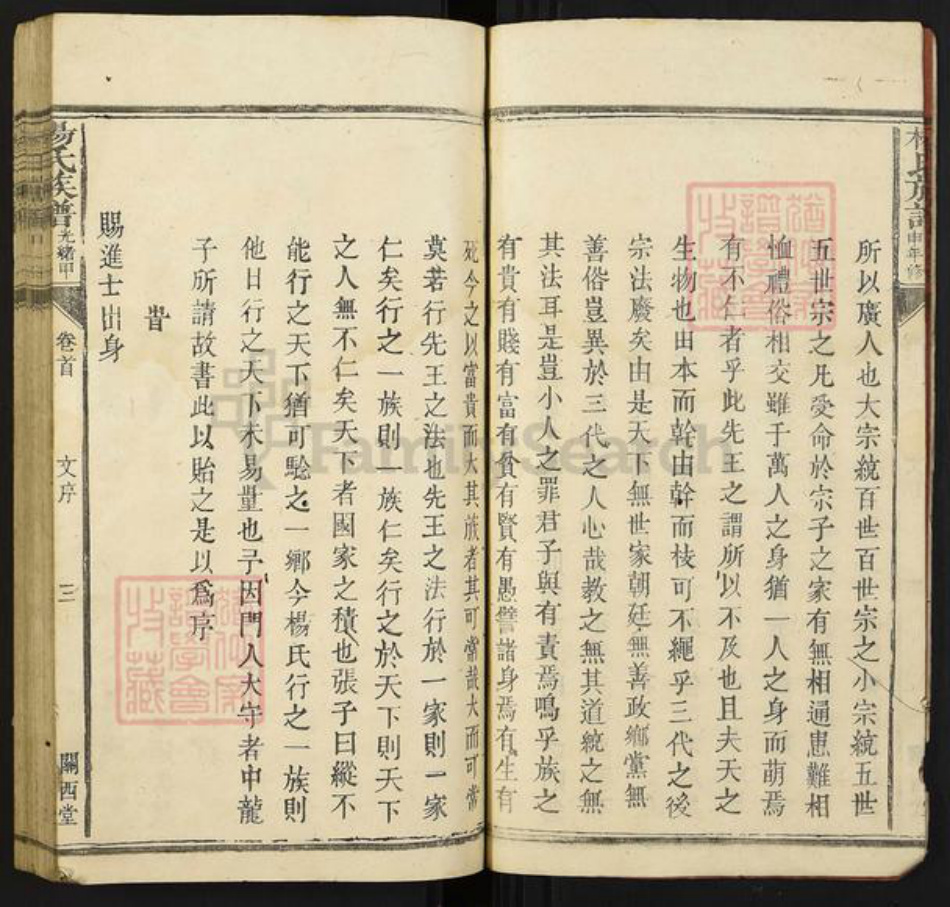 氏族譜 申年修
所以廣人也大宗統百世百世宗之小宗統五世
五世宗之凡受命於宗子之家有無相通患難相
恤禮俗相交雖千萬人之身猶一人之身而萌焉
有不仁者乎此先王之謂所以不及也且夫天之
生物也由本而幹由幹而枝可不繩乎三代之後
宗法廢矣由是天下無世家朝廷無善政鄉黨無
善俗豈異於三代之人心哉教之無其道統之無
其法耳是豈小人之罪君子與有責焉嗚乎族之
有貴有賤有富有貧有賢有愚譬諸身焉有生有
死今之以富貴而大其族者其可常哉大而可常
莫若行先王之法也先王之法行於一家則一家
仁矣行之一族則一族仁矣行之於天下則天下
之人無不仁矣天下者國家之積也張子曰縱不
能行之天下猶可驗之一鄉今楊氏行之一族則
他日行之天下未易量也予因門人大守者中龍
子所請故書此以貽之是以爲序
旹
賜進士出身
楊氏族譜 光緒甲 卷首 文序 三 關西堂
FamilySearch